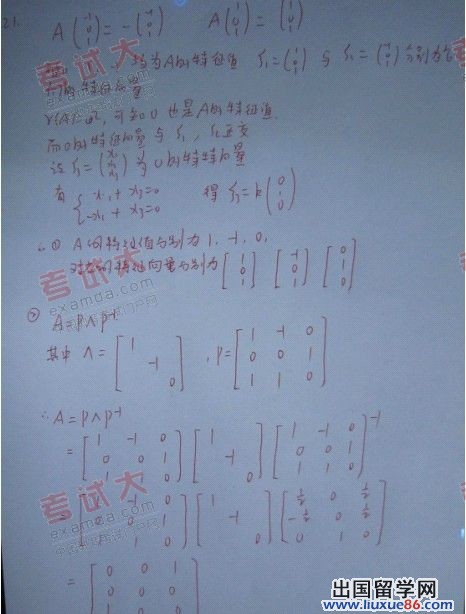 21. A(-1 0 1) = -(-1 0 1) A(1 0 1) = (1 0 1)
均为A的特征值 ξ1=(1 0 1) 与 ξ2=(-1 0 1) 分别为
的特征向量
r(A)=2, 可知0也是A的特征值.
而0的特征向量与ξ1, ξ2正交
设 ξ3=(x1 x2 x3) 为0的特征向量
有 { x1+x3=0
-x1+x3=0 得 ξ3=k(0 1 0)
∴① A的特征值分别为1, -1, 0,
对应的特征向量分别为 [1 0 1] [-1 0 1] [0 1 0]
② A=PΛP-1
其中 Λ=[1 -1 0], P=[1 -1 0
0 0 1
1 1 0]
∴A=PΛP-1
=[1 -1 0
0 0 1
1 1 0] [1 -1 0] [1 -1 0
0 0 1
1 1 0]-1
=[1 -1 0
0 0 1
1 1 0] [1 -1 0] [1/2 0 1/2
-1/2 0 1/2
0 1 0]
=[0 0 1
0 0 0
考试大
考试大
examda.com
考试大
出国留学网
www.liuxue86.com